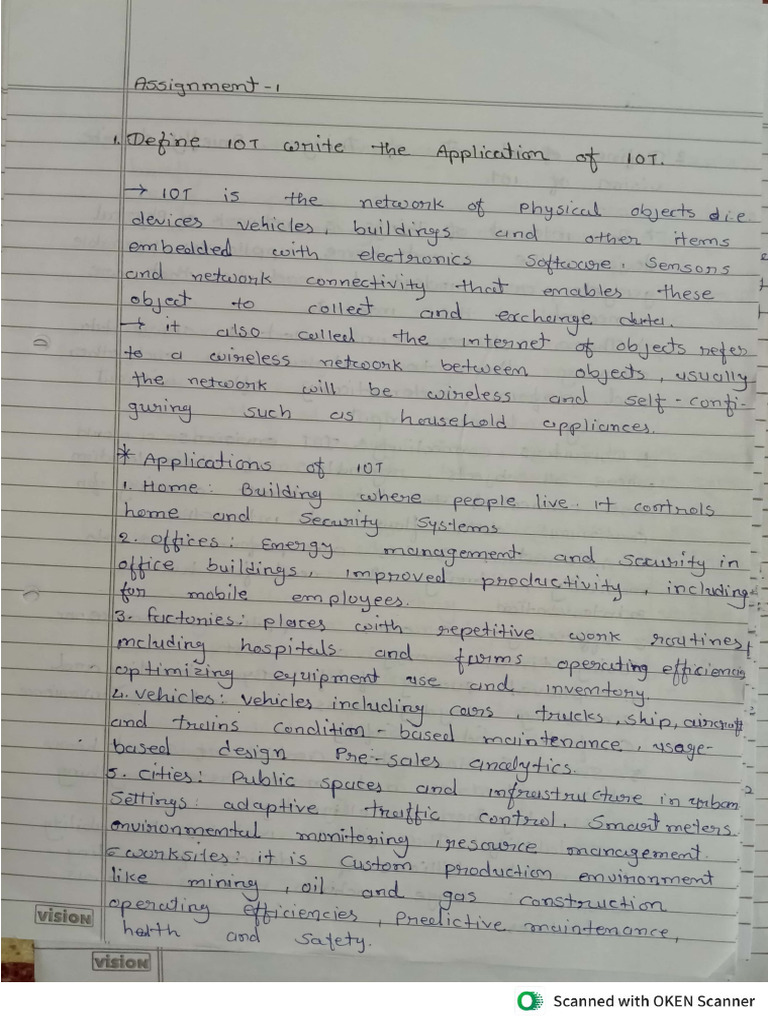 Assignment-1
1. Define IOT write the Application of IOT.
→ IOT is the network of physical objects d i.e
devices vehicles, buildings and other items
embedded with electronics software, sensors
and network connectivity that enables these
object to collect and exchange data.
→ it also called the internet of objects refer
to a wireless network between objects, usually
the network will be wireless and self-confi-
guring such as household appliances.
* Applications of IOT
1. Home: Building where people live. It controls
home and Security Systems
2. offices: Energy management and security in
office buildings, improved productivity, including
for mobile employees.
3. factories: places with repetitive work routines,
including hospitals and farms operating efficiencies
optimizing equipment use and inventory.
4. vehicles: vehicles including cars, trucks, ship, aircraft
and trains condition-based maintenance, usage-
based design Pre-sales analytics.
5. cities: Public spaces and infrastructure in urban
Settings: adaptive traffic control, Smart meters.
environmental monitoring, resource management.
6 worksites: it is custom production environment
like mining, oil and gas construction
operating efficiencies, predictive maintenance,
health and safety.
vision
vision
Scanned with OKEN Scanner